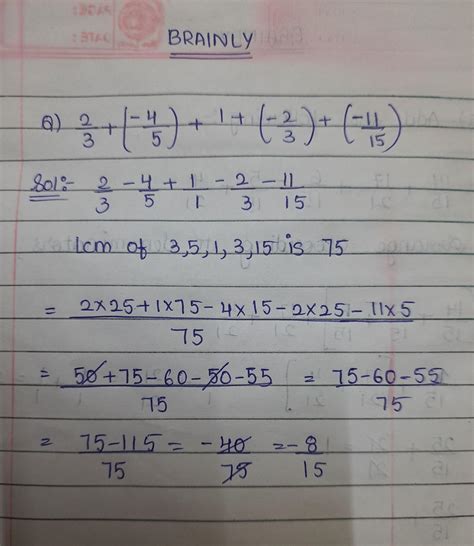 BRAINLY
Q) 2/3 + (-4/5) + 1 + (-2/3) + (-11/15)
Sol:- 2/3 - 4/5 + 1/1 - 2/3 - 11/15
lcm of 3,5,1,3,15 is 75
= 2×25+1×75-4×15-2×25-11×5/75
= 50+75-60-50-55/75 = 75-60-55/75
= 75-115/75 = -40/75 = -8/15